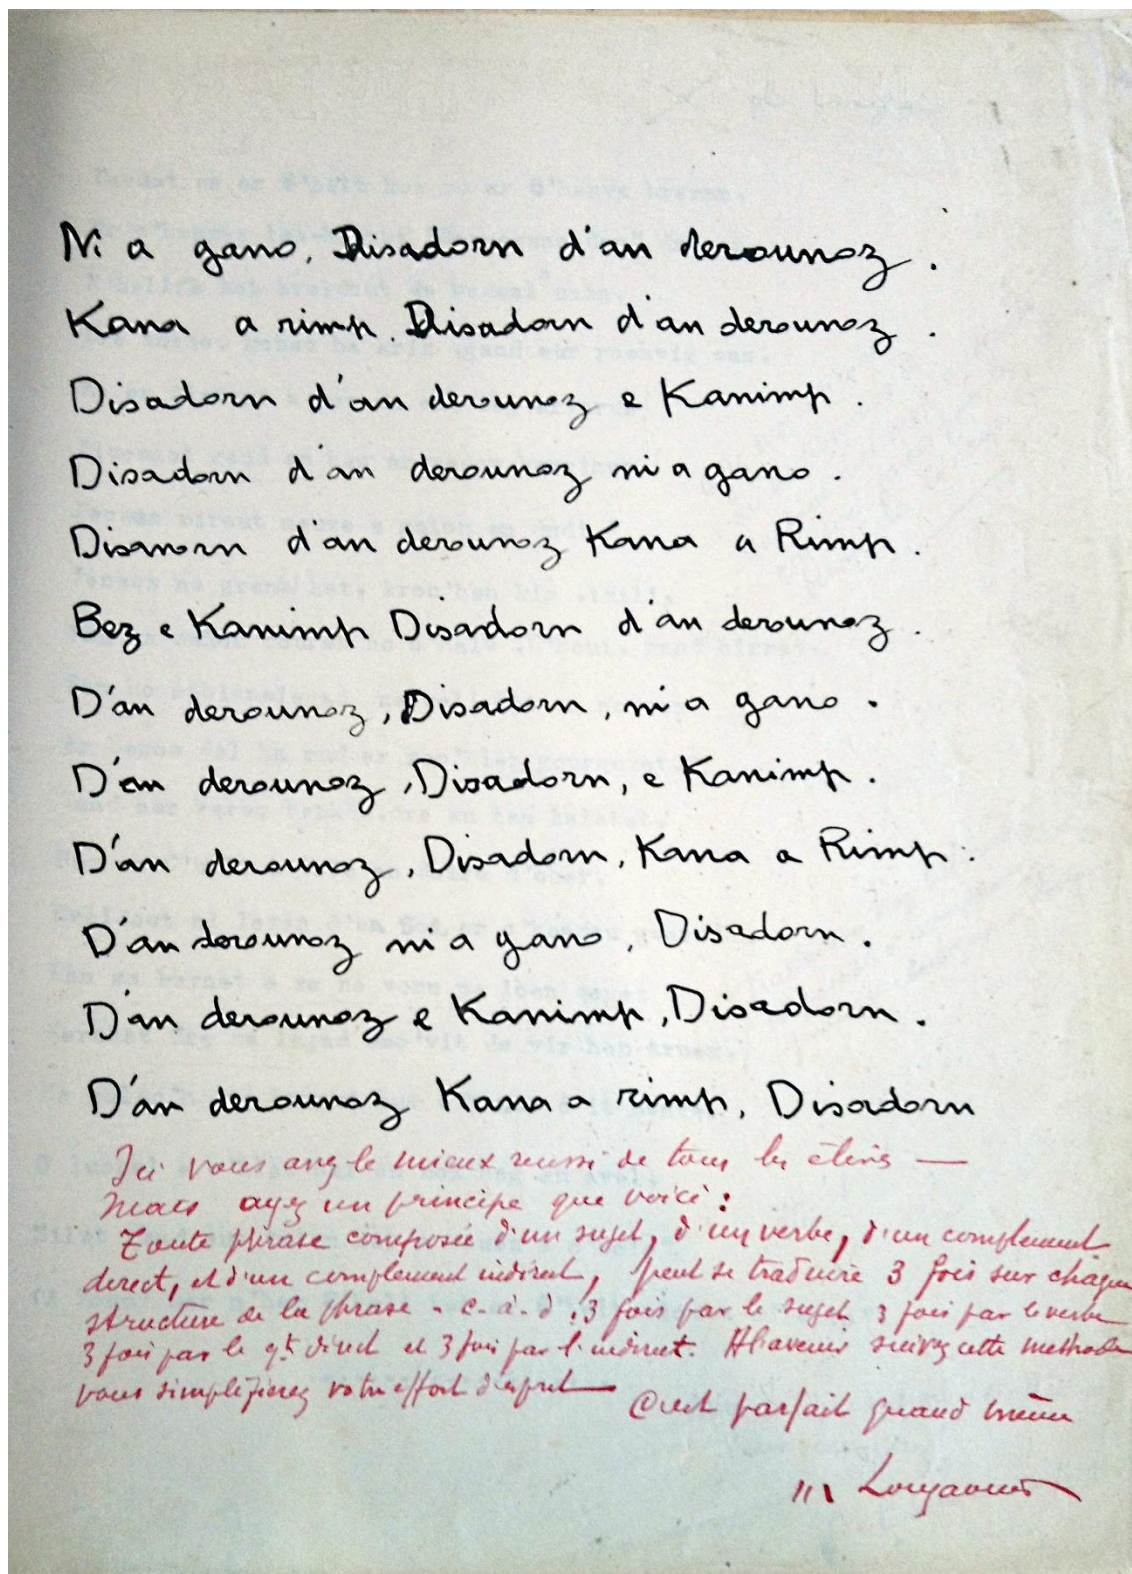 Ni a gano, Disadorn d'an derounoz.
Kana a rimp. Disadorn d'an derounoz.
Disadorn d'an derounoz e Kanimp.
Disadorn d'an derounoz ni a gano.
Disanorn d'an derounoz Kana a Rimp.
Bez e Kanimp Disadorn d'an derounoz.
D'an derounoz, Disadorn, ni a gano.
D'an derounoz, Disadorn, e Kanimp.
D'an derounoz, Disadorn, Kana a Rimp.
D'an derounoz ni a gano, Disadorn.
D'an derounoz e Kanimp, Disadorn.
D'an derounoz Kana a rimp, Disadorn
Ici vous avez le mieux reussi de tous les élèves —
Mais ayez un principe que voici :
Toute phrase composée d'un sujet, d'un verbe, d'un complement
direct, et d'un complement indirect, peut se traduire 3 fois sur chaque
structure de la phrase - c.-à-d : 3 fois par le sujet 3 fois par le verbe
3 fois par le direct et 3 fois par l'indirect. A l'avenir suivez cette methode
vous simplifierez votre effort d'esprit —
C'est parfait quand même